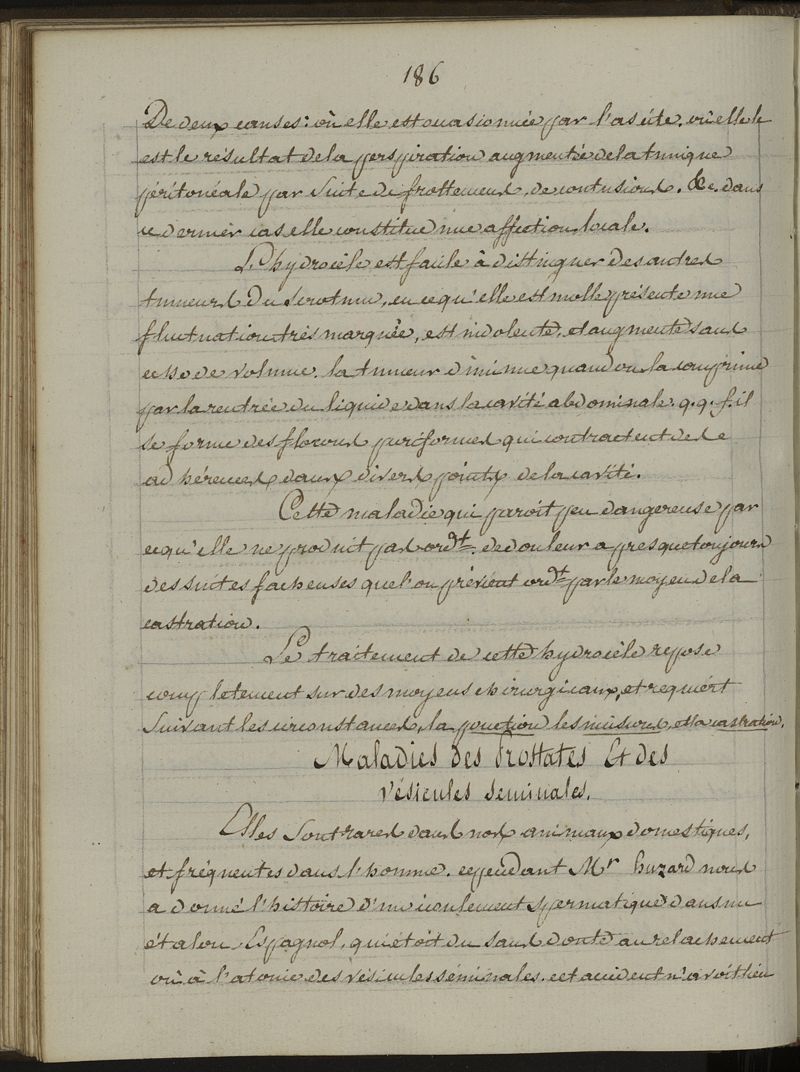 186
De deux causes: où elle est occasionnée par l'ascite. où elle
est le résultat de la perspiration augmentée de la tunique
péritonéale par suite de frottement, de contusions. &c. dans
ce dernier cas elle constitue une affection locale.
L'hydrocèle est facile à distinguer des autres
tumeurs du scrotum, en ce qu'elle est molle présente une
fluctuation très marquée, est indolente, et augmente sans
de volume. la tumeur diminue quand on la comprime
par la rentrée du liquide dans la cavité abdominale. q.q. f. il
se forme des flocons puriformes qui contractent de
adhérences dans divers points de la cavité.
Cette maladie qui paroit peu dangereuse par
cequ'elle ne produit pas ordt. de douleur a presque toujours
des suites facheuses que l'on prévient ordt par le moyen de la
castration.
Le traitement de cette hydrocèle repose
completement sur des moyens chirurgicaux, et requiert
suivant les circonstances, la ponction les incisions, et la castration.
Maladies des Prostates Et des
vésicules séminales.
Elles sont rares dans nos animaux domestiques,
et fréquentes dans l'homme. cependant Mr huzard nous
a donné l'histoire d'un écoulement spermatique dans un
étalon Espagnol, qui étoit du sans doute au relachement
où à l'atonie des vésicules séminales. cet accident n'avoit lieu